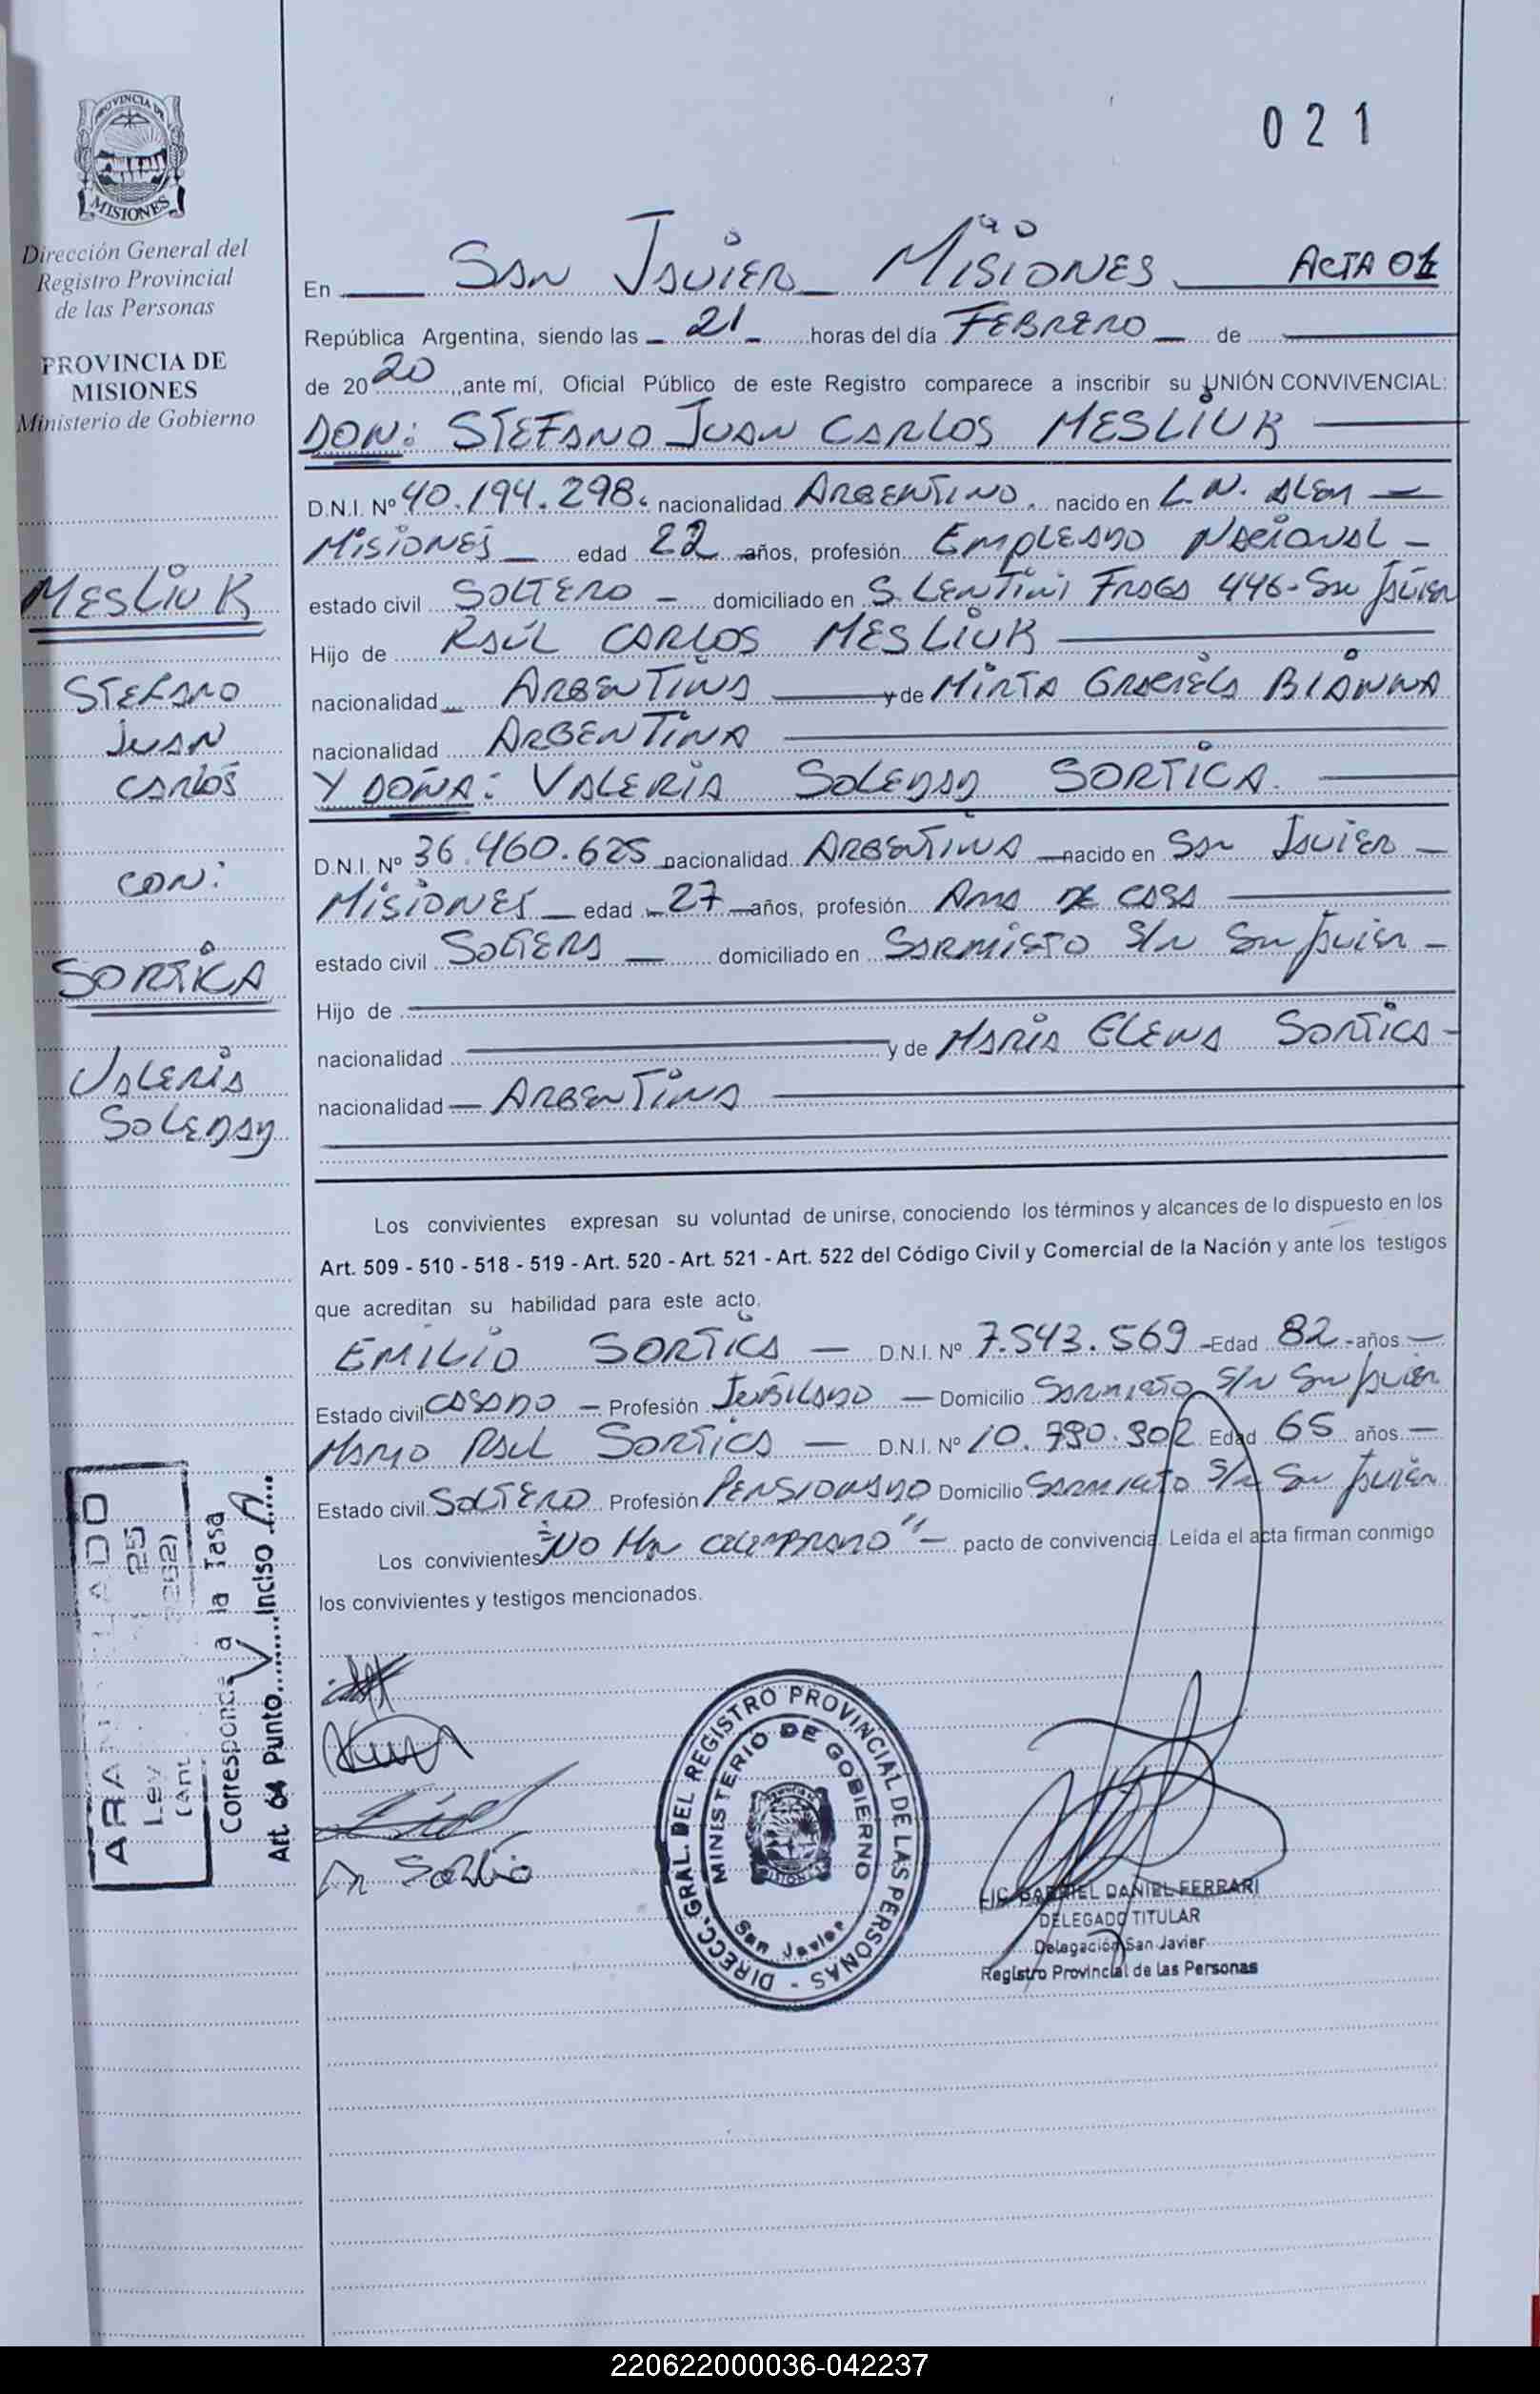 021
PROVINCIA DE
MISIONES
Dirección General del
Registro Provincial
de las Personas
PROVINCIA DE
MISIONES
Ministerio de Gobierno
MESLIUK
STEFANO
JUAN
CARLOS
CON:
SORTICA
VALERIA
SOLEDAD
En SAN JAVIER MISIONES ACTA 01
República Argentina, siendo las 21 horas del día FEBRERO de
de 2020, ante mí, Oficial Público de este Registro comparece a inscribir su UNIÓN CONVIVENCIAL:
DON: STEFANO JUAN CARLOS MESLIUK
D.N.I. Nº 40.194.298. nacionalidad ARGENTINO. nacido en L.N. ALEM
MISIONES edad 22 años, profesión EMPLEADO NACIONAL
estado civil SOLTERO domiciliado en S. LENTINI FRAGA 446 - San Javier
Hijo de RAÚL CARLOS MESLIUK
nacionalidad ARGENTINA y de MIRTA GRACIELA BIANNA
nacionalidad ARGENTINA
Y DOÑA: VALERIA SOLEDAD SORTICA.
D.N.I. Nº 36.460.625 nacionalidad ARGENTINA nacido en San JAVIER
MISIONES edad 27 años, profesión AMA DE CASA
estado civil SOLTERA domiciliado en SARMIETO S/N San Javier
Hijo de
nacionalidad y de MARIA ELENA SORTICA
nacionalidad ARGENTINA
Los convivientes expresan su voluntad de unirse, conociendo los términos y alcances de lo dispuesto en los
Art. 509 - 510 - 518 - 519 - Art. 520 - Art. 521 - Art. 522 del Código Civil y Comercial de la Nación y ante los testigos
que acreditan su habilidad para este acto.
EMILIO SORTICA D.N.I. Nº 7.543.569 Edad 82 años
Estado civil CASADO Profesión JUBILADO Domicilio SARMIETO S/N San Javier
MARIO RAUL SORTICA D.N.I. Nº Edad 65 años
Estado civil SOLTERO Profesión PENSIONADO Domicilio SARMIETO S/N San Javier
Los convivientes "NO Han" pacto de convivencia. Leída el acta firman conmigo
los convivientes y testigos mencionados.
ARA LADO
Ley 25
(Ant.
Corresponde a la Tasa
Art. 64 Punto V Inciso A
DIRECC. GRAL. DEL REGISTRO PROVINCIAL DE LAS PERSONAS
MINISTERIO DE GOBIERNO
MISIONES
San Javier
LIC. GABRIEL DANIEL FERRARI
DELEGADO TITULAR
Delegación San Javier
Registro Provincial de las Personas
220622000036-042237